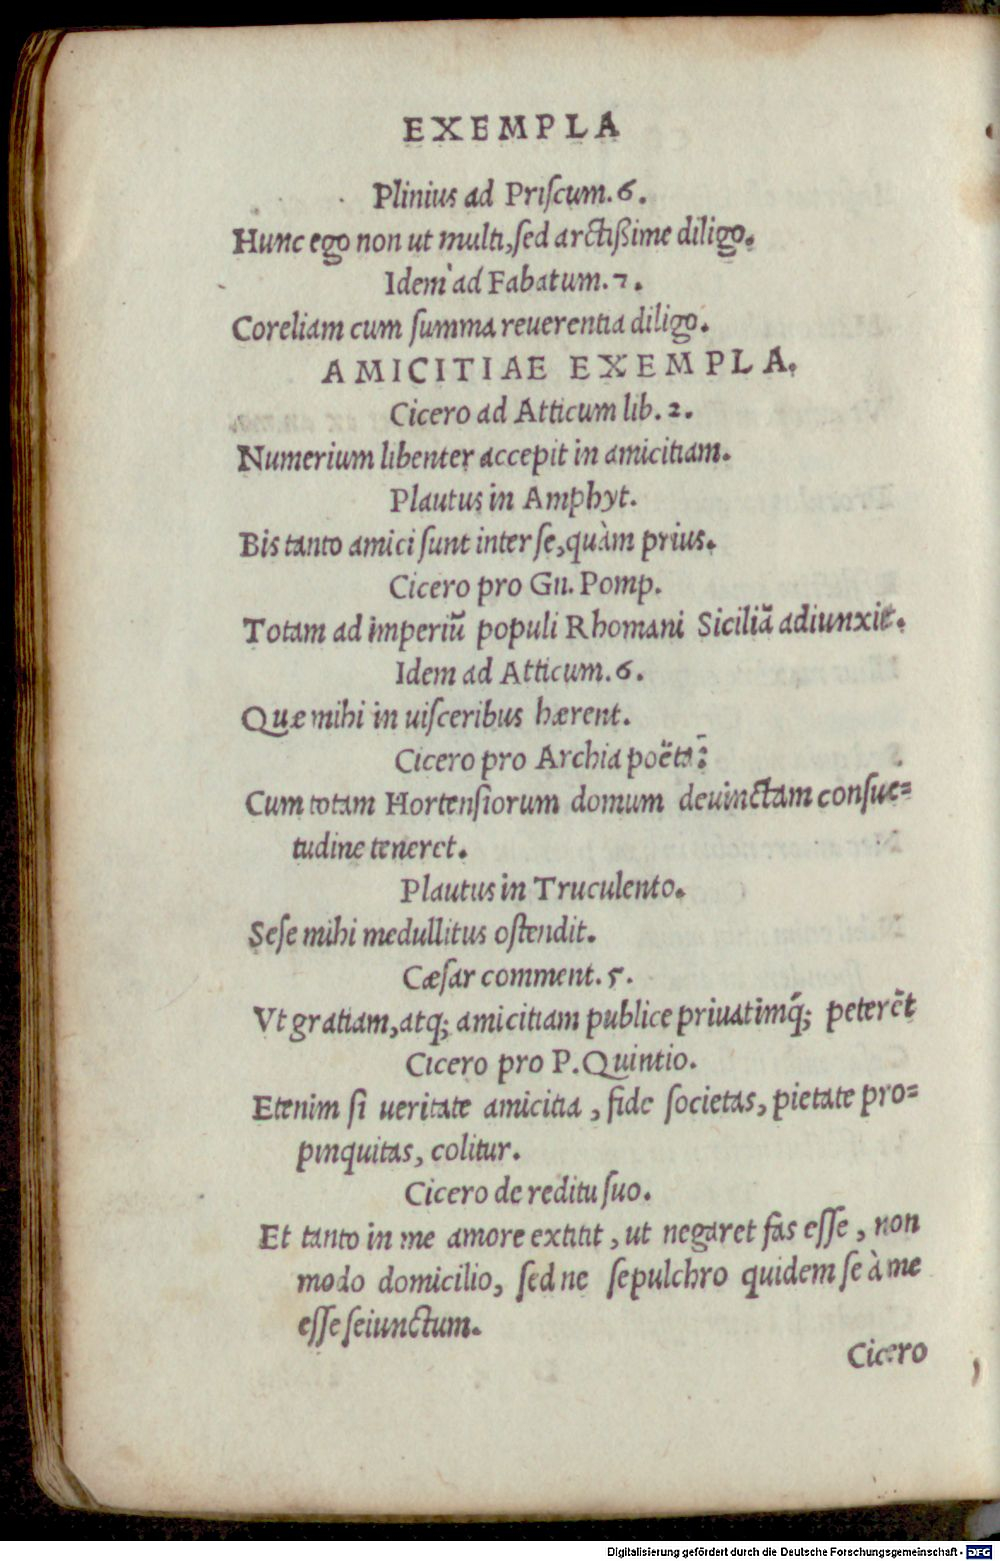 EXEMPLA
Plinius ad Priſcum. 6.
Hunc ego non ut multi, ſed arctißime diligo.
Idem ad Fabatum. 7.
Coreliam cum ſumma reuerentia diligo.
AMICITIAE EXEMPLA.
Cicero ad Atticum lib. 2.
Numerium libenter accepit in amicitiam.
Plautus in Amphyt.
Bis tanto amici ſunt inter ſe, quàm prius.
Cicero pro Gn. Pomp.
Totam ad imperiũ populi Rhomani Siciliã adiunxit.
Idem ad Atticum. 6.
Quæ mihi in uiſceribus hærent.
Cicero pro Archia poëta.
Cum totam Hortenſiorum domum deuinctam conſue=
tudine teneret.
Plautus in Truculento.
Seſe mihi medullitus oſtendit.
Cæſar comment. 5.
Vt gratiam, atq; amicitiam publice priuatimq́; peterẽt
Cicero pro P. Quintio.
Etenim ſi ueritate amicitia, fide ſocietas, pietate pro=
pinquitas, colitur.
Cicero de reditu ſuo.
Et tanto in me amore extitit, ut negaret fas eſſe, non
modo domicilio, ſed ne ſepulchro quidem ſe à me
eſſe ſeiunctum.
Cicero
Digitalisierung gefördert durch die Deutsche Forschungsgemeinschaft - DFG